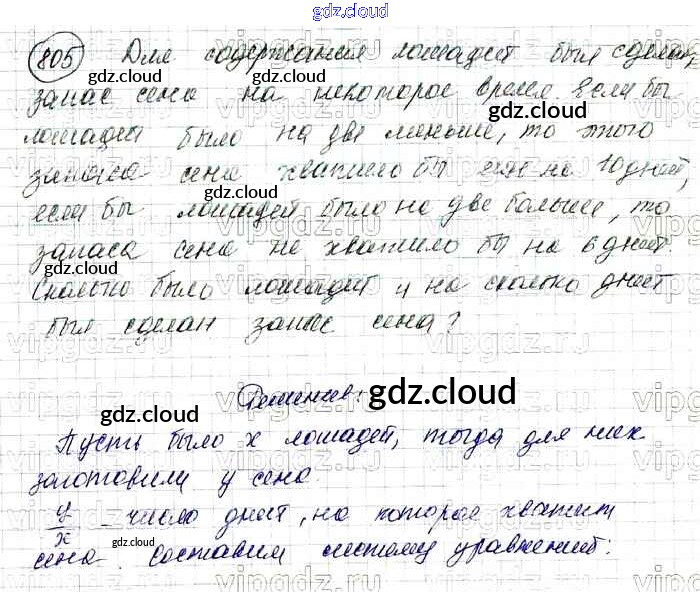 gdz.cloud
805 Для содержания лошадей был сделан
запас сена на некоторое время. Если бы
лошадей было на две меньше, то этого
запаса сена хватило бы ещё на 10 дней,
если бы лошадей было на две больше, то
запаса сена не хватило бы на 6 дней
Сколько было лошадей и на сколько дней
был сделан запас сена?
Решение:
Пусть было x лошадей, тогда для них
заготовили y сена.
y/x - число дней, на которое хватит
сена. Составим систему уравнений: